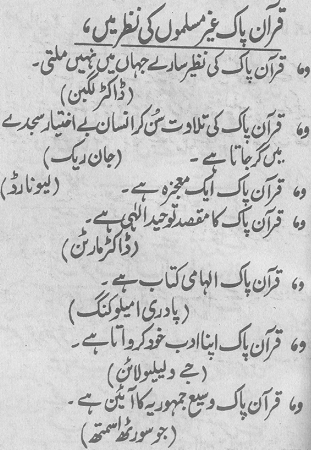 قرآن پاک غیر مسلموں کی نظر میں،
قرآن پاک کی نظیر سارے جہاں میں نہیں ملتی۔
(ڈاکٹر لگین)
قرآن پاک کی تلاوت سُن کر انسان بے اختیار سجدے
میں گر جاتا ہے۔ (جان ریک)
قرآن پاک ایک معجزہ ہے۔ (لیونارڈ)
قرآن پاک کا مقصد توحید الٰہی ہے۔
(ڈاکٹر مارٹن)
قرآن پاک الہامی کتاب ہے۔
(پادری امیلوکنگ)
قرآن پاک اپنا ادب خود کرواتا ہے۔
(جے ولیبلولاٹن)
قرآن پاک وسیع جمہوریہ کا آئین ہے۔
(جوسورٹھ اسمتھ)